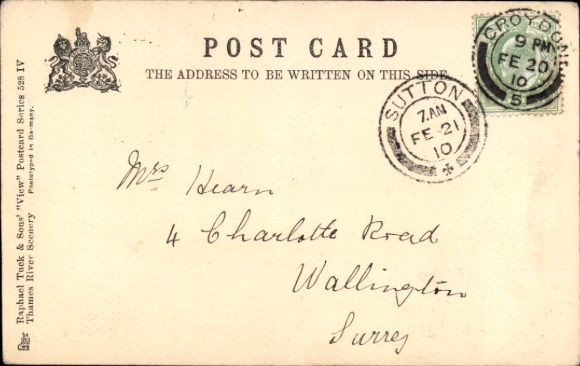 POST CARD
THE ADDRESS TO BE WRITTEN ON THIS SIDE.
CROYDON
9 PM
FE 20
10
5
SUTTON
7.AM
FE 21
10
Mrs Hearn
4 Charlotte Road
Wallington
Surrey
Raphael Tuck & Sons' "View" Postcard Series 528 IV
Thames River Scenery Phototyped in Germany.